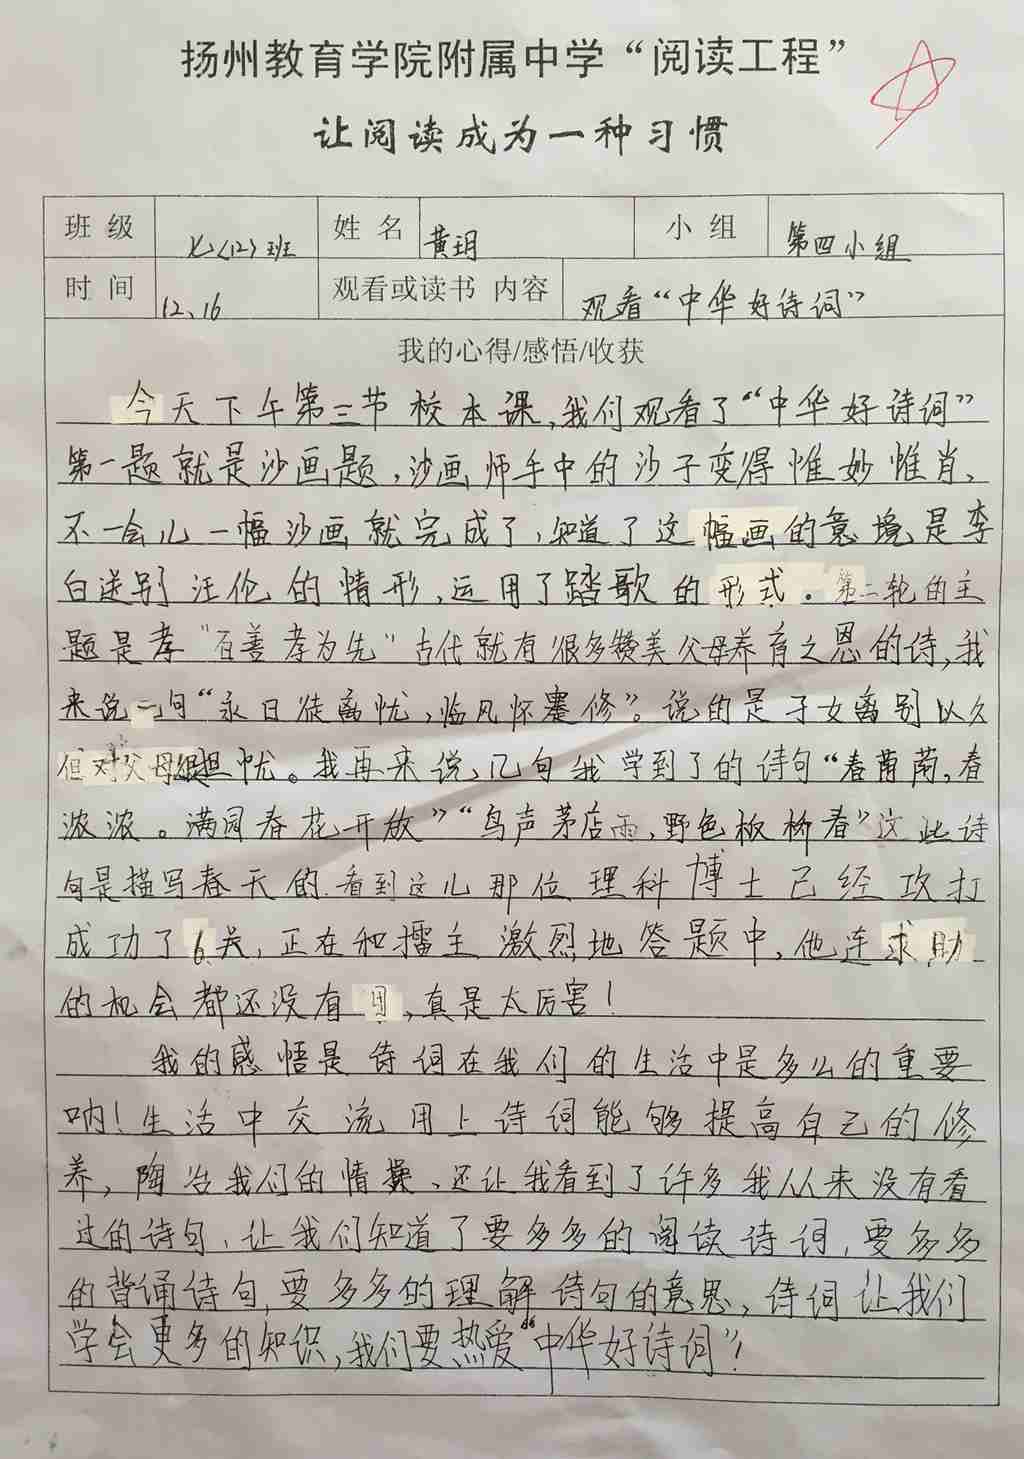 扬州教育学院附属中学“阅读工程”
让阅读成为一种习惯
班级 七(12)班 姓名 黄玥 小组 第四小组
时间 12、16 观看或读书 内容 观看“中华好诗词”
我的心得/感悟/收获
今天下午第三节校本课,我们观看了“中华好诗词”
第一题就是沙画题,沙画师手中的沙子变得惟妙惟肖、
不一会儿一幅沙画就完成了,知道了这幅画的意境是李
白送别汪伦的情形,运用了踏歌的形式。第二轮的主
题是孝“百善孝为先”古代就有很多赞美父母养育之恩的诗,我
来说一句“永日徒离忧,临风怀蹇修”。说的是子女离别以久
但对父母很担忧。我再来说,几句我学到了的诗句“春茵茵,春
浓浓。满园春花开放”“鸟声茅店雨,野色板桥春”这些诗
句是描写春天的.看到这儿那位理科博士已经攻打
成功了6关,正在和擂主激烈地答题中,他连求助
的机会都还没有用,真是太厉害!
我的感悟是诗词在我们的生活中是多么的重要
呐!生活中交流用上诗词能够提高自己的修
养,陶冶我们的情操、还让我看到了许多我从来没有看
过的诗句,让我们知道了要多多的阅读诗词,要多多
的背诵诗句,要多多的理解诗句的意思,诗词让我们
学会更多的知识,我们要热爱“中华好诗词”!